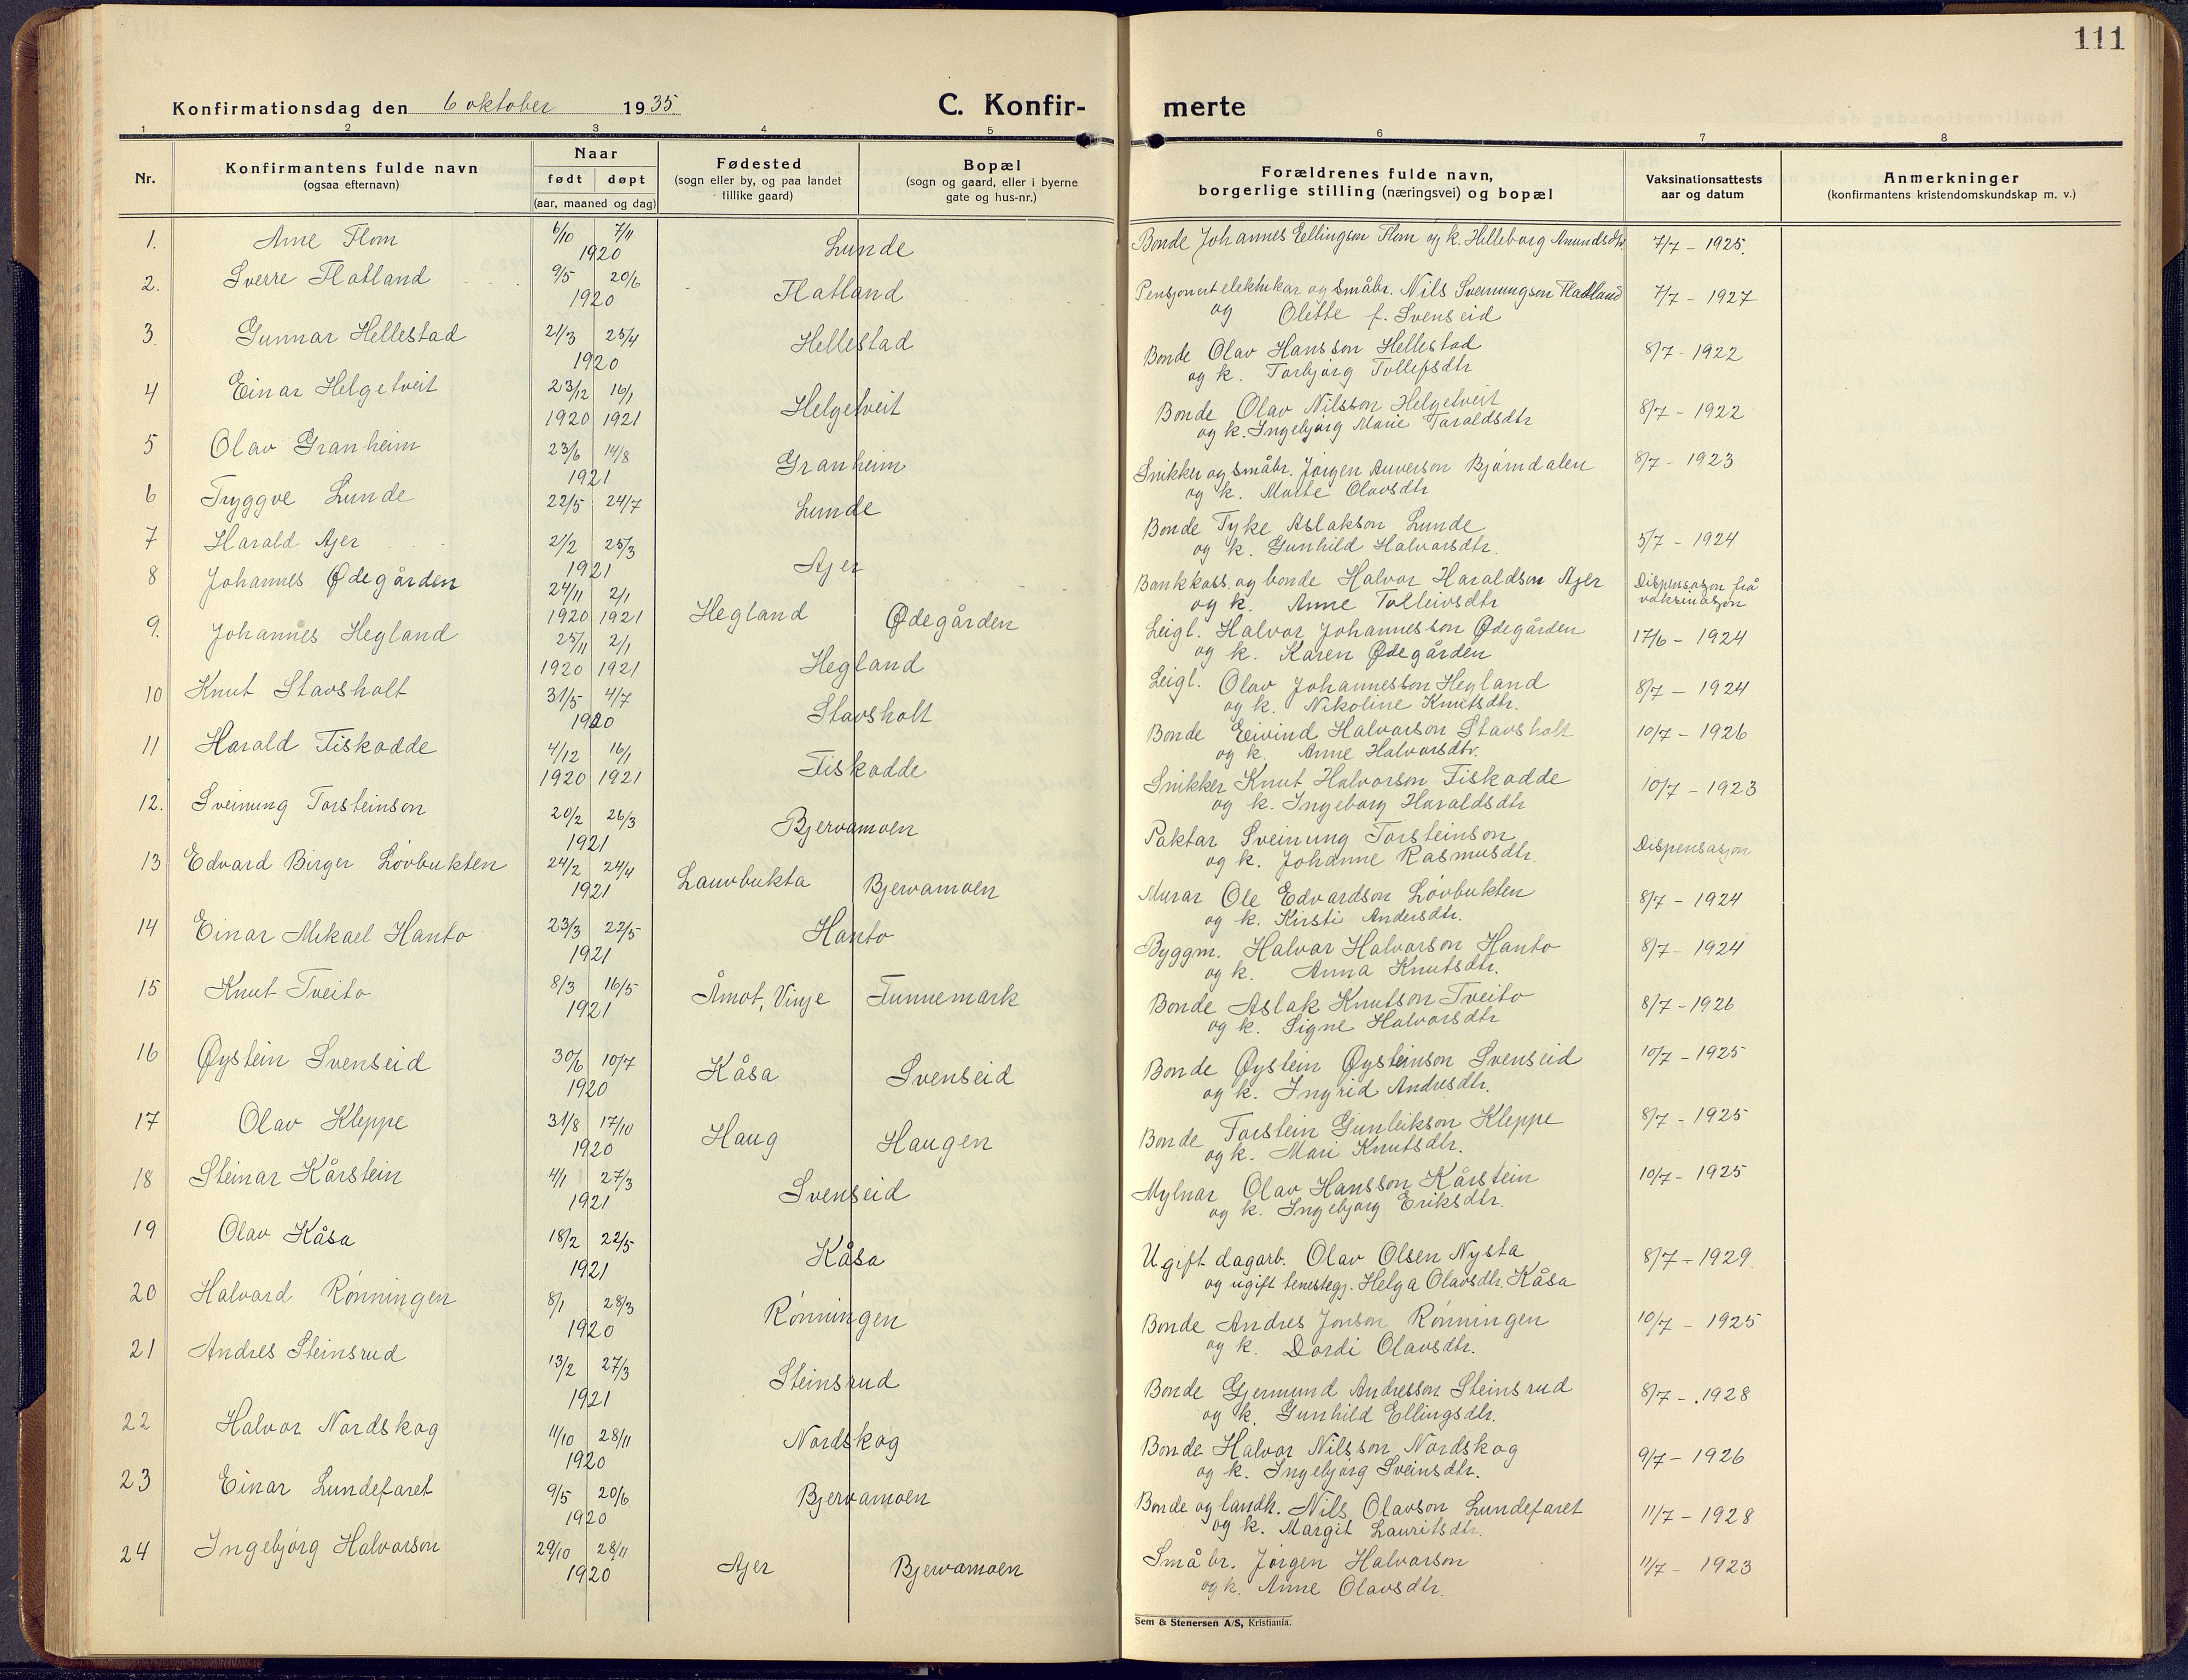 111
Konfirmationsdag den 6 oktober 1935.
C. Konfir-
merte
1 2 3 4 5 6 7 8
Nr.
Konfirmantens fulde navn
(ogsaa efternavn)
Naar
født døpt
(aar, maaned og dag)
Fødested
(sogn eller by, og paa landet
tillike gaard)
Bopæl
(sogn og gaard, eller i byerne
gate og hus-nr.)
Forældrenes fulde navn,
borgerlige stilling (næringsvei) og bopæl
Vaksinationsattests
aar og datum
Anmerkninger
(konfirmantens kristendomskundskap m. v.)
1. Arne Flom 6/10 7/11 1920 Lunde Bonde Johannes Eellingson Flom og k. Helleborg Amundsdtr 7/7 - 1925.
2. Sverre Flatland 9/5 20/6 1920 Flatland Pensjonert elektrikar og småbr. Nils Sveinungson Flatland 7/7 - 1927
og Olette f. Svenseid
3. Gunnar Hellestad 21/3 25/4 1920 Hellestad Bonde Olav Hansson Hellestad 8/7 - 1922
og k. Torbjørg Tollefsdtr
4 Einar Helgetveit 23/12 16/1 1920 1921 Helgetveit Bonde Olav Nilsson Helgetveit 8/7 - 1922
og k. Ingebjørg Marie Taraldsdtr
5 Olav Granheim 23/6 14/8 1921 Granheim Snikker og småbr. Jørgen Auverson Bjørndalen 8/7 - 1923
og k. Marte Olavsdtr
6 Tryggve Lunde 22/5 24/7 Lunde Bonde Tyke Aslakson Lunde 5/7 - 1924
og k. Gunhild Halvorsdtr.
7 Harald Ajer 2/2 25/3 1921 Ajer Bankkass. og bonde Halvor Haraldson Ajer Dispensasjon frå
og k. Anne Tolleivsdtr vaksinasjon
8 Johannes Ødegården 24/11 2/1 1920 1921 Hegland Ødegården Leigl. Halvor Johannesson Ødegården 17/6 - 1924
og k. Karen Ødegården
9. Johannes Hegland 25/11 2/1 1920 1921 Hegland Leigl. Olav Johannesson Hegland 8/7 - 1924
og k. Nikoline Knutsdtr.
10 Knut Stavsholt 31/5 4/7 1920 Stavsholt Bonde Eivind Halvorson Stavsholt 10/7 - 1926
og k. Anne Halvorsdtr.
11 Harald Fiskodde 4/12 16/1 1920 1921 Fiskodde Snikker Knut Halvorson Fiskodde 10/7 - 1923
og k. Ingeborg Haraldsdtr
12. Sveinung Torsteinson 20/2 26/3 1921 Bjervamoen Paktar Sveinung Torsteinson Dispensasjon
og k. Johanne Rasmusdtr.
13 Edvard Birger Løvbukten 24/2 24/4 1921 Lauvbukta Bjervamoen Murar Ole Edvardson Løvbukten 8/7 - 1924
og k. Kirsti Andersdtr.
14 Einar Mikael Hanto 23/3 22/5 1921 Hanto Byggm. Halvor Halvorson Hanto 8/7 - 1924
og k. Anna Knutsdtr.
15 Knut Tveito 8/3 16/5 1921 Åmot, Vinje Tunnemark Bonde Aslak Knutson Tveito 8/7 - 1926
og k. Signe Halvorsdtr
16 Øystein Svenseid 30/6 10/7 1920 Kåsa Svenseid Bonde Øystein Øysteinson Svenseid 10/7 - 1925
og k. Ingrid Andresdtr.
17 Olav Kleppe 31/8 17/10 1920 Haug Haugen Bonde Torstein Gunleikson Kleppe 8/7 - 1925
og k. Mari Knutsdtr.
18 Steinar Kårstein 4/1 27/3 1921 Svenseid Mylnar Olav Hansson Kårstein 10/7 - 1925
og k. Ingebjørg Eriksdtr.
19 Olav Kåsa 18/2 22/5 1921 Kåsa Ugift dagarb. Olav Olsen Nysta 8/7 - 1929.
og ugift tenestegj. Helga Olavsdtr. Kåsa
20 Halvard Rønningen 8/1 28/3 1920 Rønningen Bonde Andres Jonson Rønningen 10/7 - 1925
og k. Dordi Olavsdtr.
21 Andres Steinsrud 13/2 27/3 1921 Steinsrud Bonde Gjermund Andresson Steinsrud 8/7 - 1928
og k. Gunhild Ellingsdtr.
22 Halvor Nordskog 11/10 28/11 1920 Nordskog Bonde Halvor Nilsson Nordskog 9/7 - 1926
og k. Ingebjørg Sveinsdtr.
23 Einar Lundefaret 9/5 20/6 1920 Bjervamoen Bonde og landh. Nils Olavson Lundefaret 11/7 - 1928
og k. Margit Lauritsdtr.
24 Ingebjørg Halvorson 29/10 28/11 1920 Ajer Bjervamoen Småbr. Jørgen Halvorson 11/7 - 1923
og k. Anne Olavsdtr.
Sem & Stenersen A/S, Kristiania.